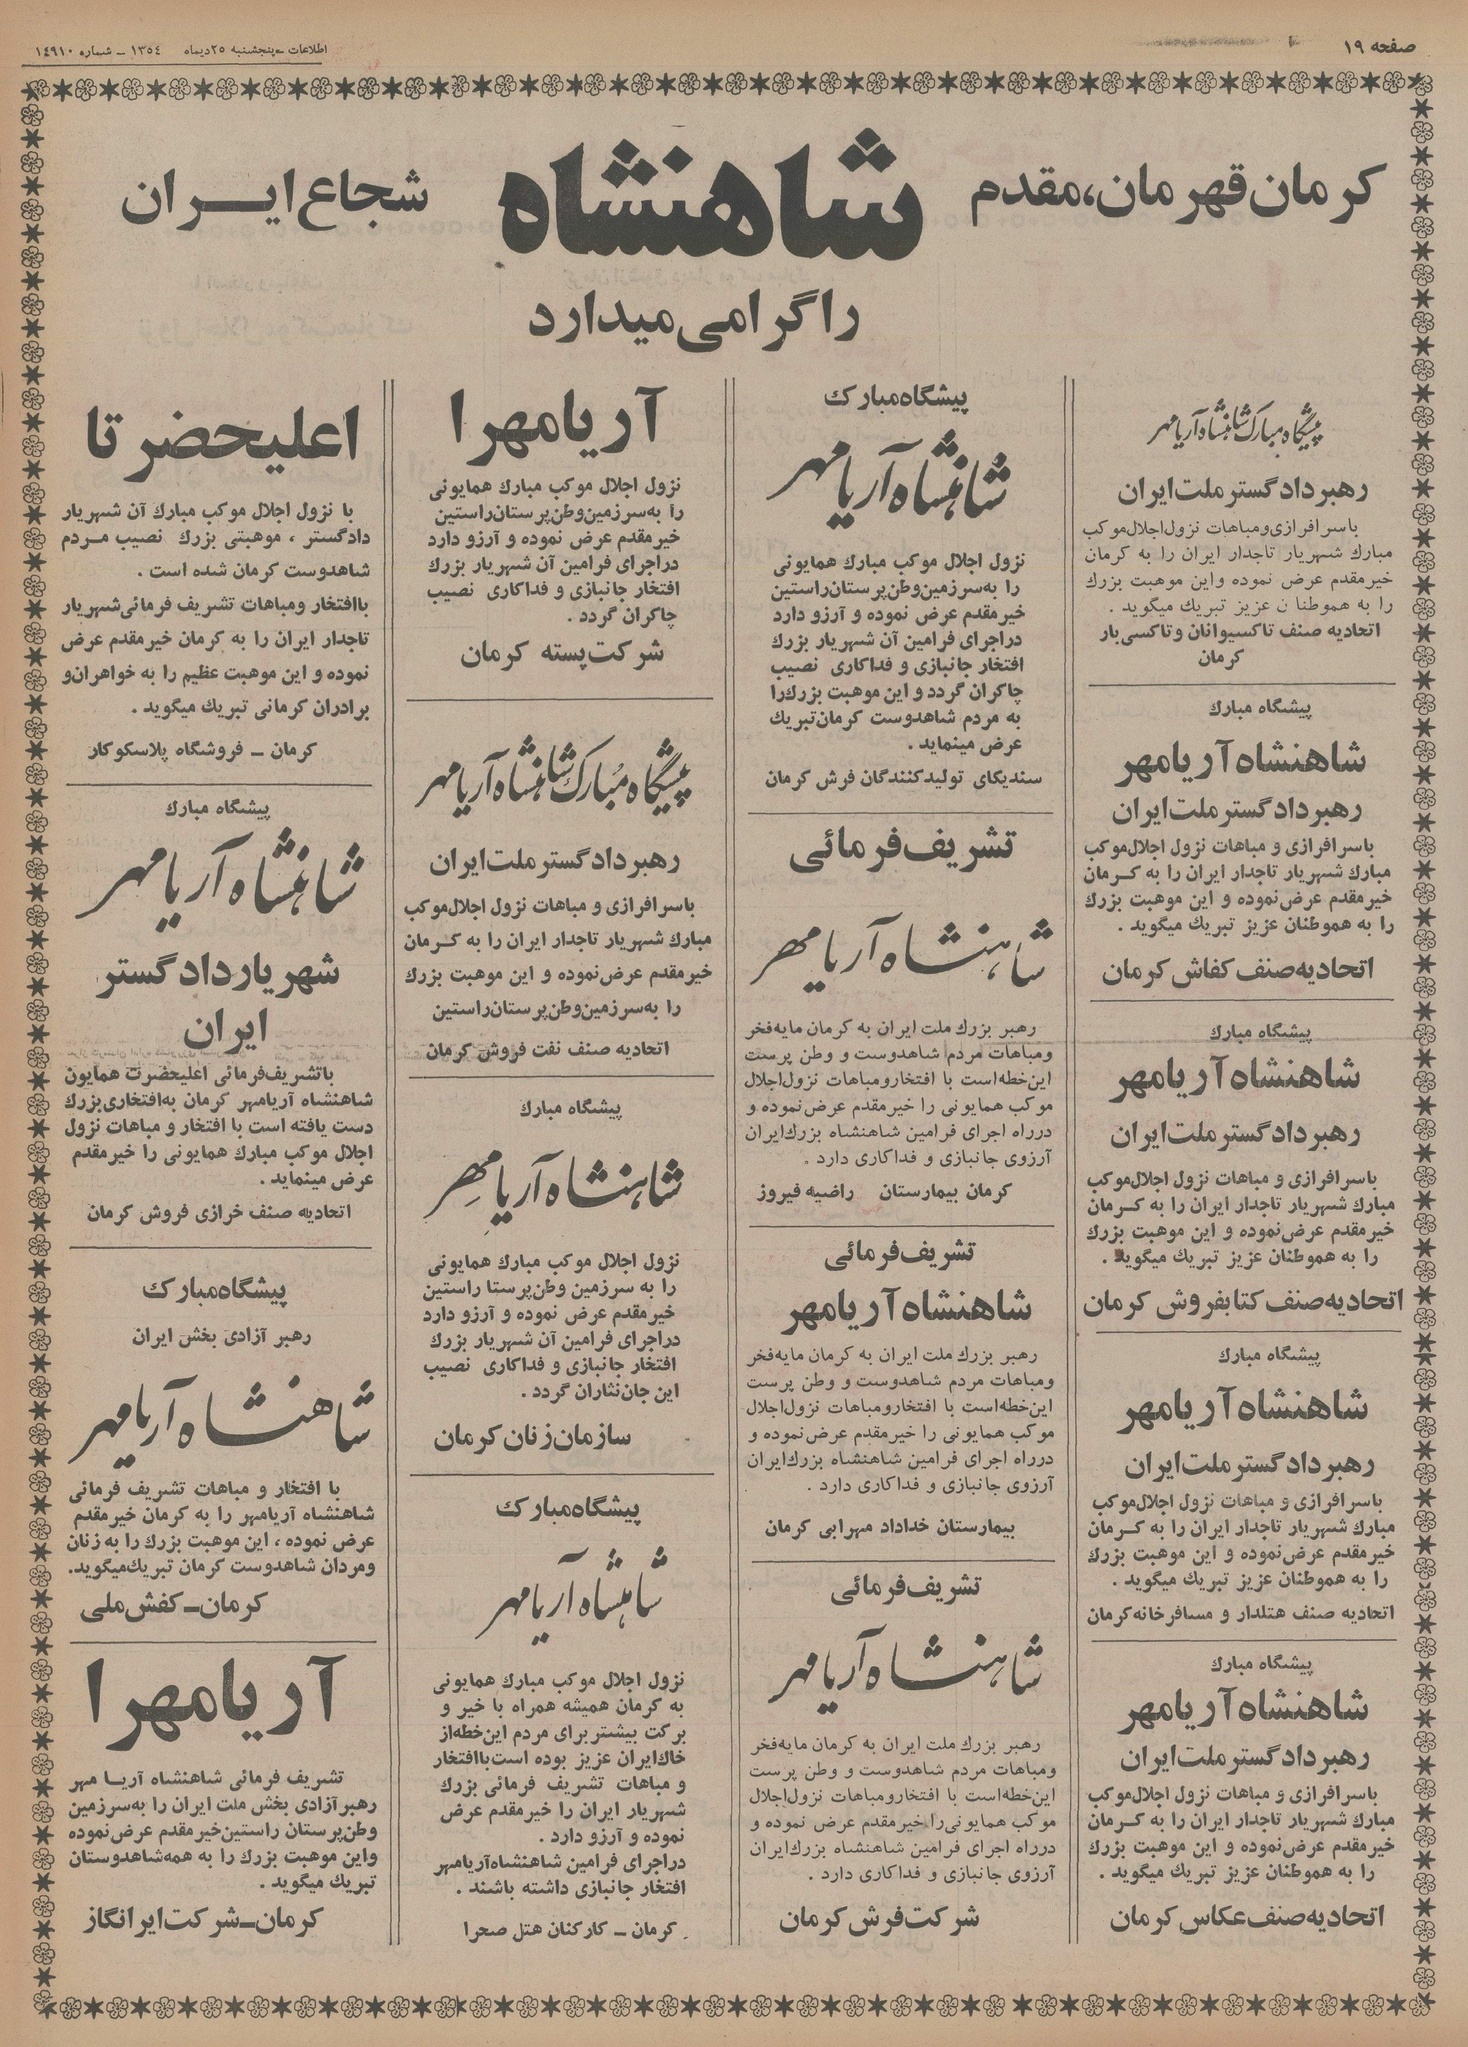 صفحه ۱۹
اطلاعات ـ پنجشنبه ۲۵ دیماه ۱۳۵٤ ـ شماره ۱٤۹۱۰
کرمان قهرمان، مقدم شاهنشاه شجاع ایران
را گرامی میدارد
پیشگاه مبارک شاهنشاه آریامهر
رهبر دادگستر ملت ایران
باسرافرازی ومباهات نزول اجلال موکب
مبارك شهریار تاجدار ایران را به کرمان
خیرمقدم عرض نموده واین موهبت بزرك
را به هموطنان عزیز تبریك میگوید .
اتحادیه صنف تاکسیوانان و تاکسی بار
کرمان
پیشگاه مبارك
شاهنشاه آریامهر
رهبر دادگستر ملت ایران
باسرافرازی و مباهات نزول اجلال موکب
مبارك شهریار تاجدار ایران را به کرمان
خیرمقدم عرض نموده و این موهبت بزرك
را به هموطنان عزیز تبریك میگوید .
اتحادیه صنف کفاش کرمان
پیشگاه مبارك
شاهنشاه آریامهر
رهبر دادگستر ملت ایران
باسرافرازی و مباهات نزول اجلال موکب
مبارك شهریار تاجدار ایران را به کرمان
خیرمقدم عرض نموده و این موهبت بزرك
را به هموطنان عزیز تبریك میگوید .
اتحادیه صنف کتابفروش کرمان
پیشگاه مبارك
شاهنشاه آریامهر
رهبر دادگستر ملت ایران
باسرافرازی و مباهات نزول اجلال موکب
مبارك شهریار تاجدار ایران را به کرمان
خیرمقدم عرض نموده و این موهبت بزرك
را به هموطنان عزیز تبریك میگوید .
اتحادیه صنف هتلدار و مسافرخانه کرمان
پیشگاه مبارك
شاهنشاه آریامهر
رهبر دادگستر ملت ایران
باسرافرازی و مباهات نزول اجلال موکب
مبارك شهریار تاجدار ایران را به کرمان
خیرمقدم عرض نموده و این موهبت بزرك
را به هموطنان عزیز تبریك میگوید .
اتحادیه صنف عکاس کرمان
پیشگاه مبارک
شاهنشاه آریامهر
نزول اجلال موکب مبارك همایونی
را به سرزمین وطن پرستان راستین
خیرمقدم عرض نموده و آرزو دارد
دراجرای فرامین آن شهریار بزرك
افتخار جانبازی و فداکاری نصیب
چاکران گردد و این موهبت بزرك را
به مردم شاهدوست کرمان تبریك
عرض مینماید .
سندیکای تولیدکنندگان فرش کرمان
تشریف فرمائی
شاهنشاه آریامهر
رهبر بزرك ملت ایران به کرمان مایه فخر
ومباهات مردم شاهدوست و وطن پرست
این خطه است با افتخار ومباهات نزول اجلال
موکب همایونی را خیرمقدم عرض نموده و
درراه اجرای فرامین شاهنشاه بزرك ایران
آرزوی جانبازی و فداکاری دارد .
کرمان بیمارستان راضیه فیروز
تشریف فرمائی
شاهنشاه آریامهر
رهبر بزرك ملت ایران به کرمان مایه فخر
ومباهات مردم شاهدوست و وطن پرست
این خطه است با افتخار ومباهات نزول اجلال
موکب همایونی را خیرمقدم عرض نموده و
درراه اجرای فرامین شاهنشاه بزرك ایران
آرزوی جانبازی و فداکاری دارد .
بیمارستان خداداد مهرابی کرمان
تشریف فرمائی
شاهنشاه آریامهر
رهبر بزرك ملت ایران به کرمان مایه فخر
ومباهات مردم شاهدوست و وطن پرست
این خطه است با افتخار ومباهات نزول اجلال
موکب همایونی را خیرمقدم عرض نموده و
درراه اجرای فرامین شاهنشاه بزرك ایران
آرزوی جانبازی و فداکاری دارد .
شرکت فرش کرمان
آریامهرا
نزول اجلال موکب مبارك همایونی
را به سرزمین وطن پرستان راستین
خیرمقدم عرض نموده و آرزو دارد
دراجرای فرامین آن شهریار بزرك
افتخار جانبازی و فداکاری نصیب
چاکران گردد .
شرکت پسته کرمان
پیشگاه مبارک شاهنشاه آریامهر
رهبر دادگستر ملت ایران
باسرافرازی و مباهات نزول اجلال موکب
مبارك شهریار تاجدار ایران را به کرمان
خیرمقدم عرض نموده و این موهبت بزرك
را به سرزمین وطن پرستان راستین
اتحادیه صنف نفت فروش کرمان
پیشگاه مبارك
شاهنشاه آریامهر
نزول اجلال موکب مبارك همایونی
را به سرزمین وطن پرستا راستین
خیرمقدم عرض نموده و آرزو دارد
دراجرای فرامین آن شهریار بزرك
افتخار جانبازی و فداکاری نصیب
این جان نثاران گردد .
سازمان زنان کرمان
پیشگاه مبارک
شاهنشاه آریامهر
نزول اجلال موکب مبارك همایونی
به کرمان همیشه همراه با خیر و
برکت بیشتر برای مردم این خطه از
خاك ایران عزیز بوده است باافتخار
و مباهات تشریف فرمائی بزرك
شهریار ایران را خیرمقدم عرض
نموده و آرزو دارد .
دراجرای فرامین شاهنشاه آریامهر
افتخار جانبازی داشته باشند .
کرمان ـ کارکنان هتل صحرا
اعلیحضرتا
با نزول اجلال موکب مبارك آن شهریار
دادگستر ، موهبتی بزرك نصیب مردم
شاهدوست کرمان شده است .
باافتخار ومباهات تشریف فرمائی شهریار
تاجدار ایران را به کرمان خیرمقدم عرض
نموده و این موهبت عظیم را به خواهران و
برادران کرمانی تبریك میگوید .
کرمان ـ فروشگاه پلاسکوکار
پیشگاه مبارك
شاهنشاه آریامهر
شهریار دادگستر
ایران
باتشریف فرمائی اعلیحضرت همایون
شاهنشاه آریامهر کرمان به افتخاری بزرك
دست یافته است با افتخار و مباهات نزول
اجلال موکب مبارك همایونی را خیرمقدم
عرض مینماید .
اتحادیه صنف خرازی فروش کرمان
پیشگاه مبارک
رهبر آزادی بخش ایران
شاهنشاه آریامهر
با افتخار و مباهات تشریف فرمائی
شاهنشاه آریامهر را به کرمان خیرمقدم
عرض نموده ، این موهبت بزرك را به زنان
ومردان شاهدوست کرمان تبریك میگوید.
کرمان ـ کفش ملی
آریامهرا
تشریف فرمائی شاهنشاه آریا مهر
رهبر آزادی بخش ملت ایران را به سرزمین
وطن پرستان راستین خیرمقدم عرض نموده
واین موهبت بزرك را به همه شاهدوستان
تبریك میگوید .
کرمان ـ شرکت ایرانگاز